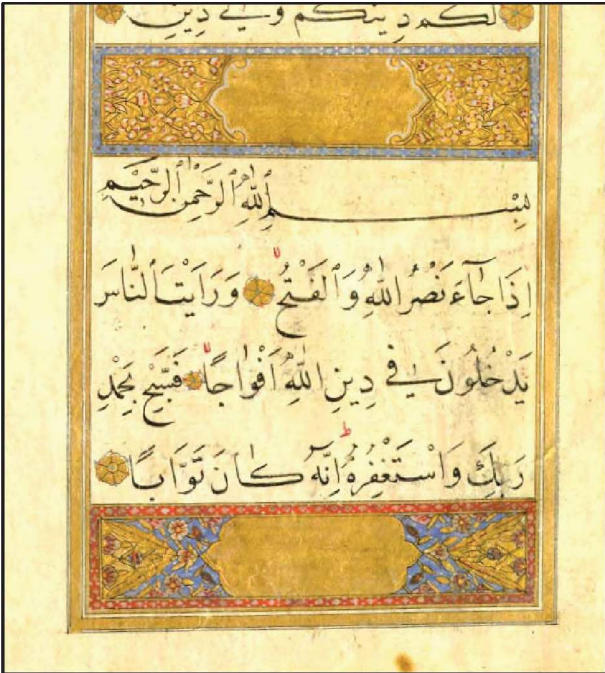 لَكُمْ دِينُكُمْ وَلِيَ دِينِ
بِسْمِ اللّٰهِ الرَّحْمٰنِ الرَّحِيمِ
اِذَا جَٓاءَ نَصْرُ اللّٰهِ وَالْفَتْحُ وَرَاَيْتَ النَّاسَ
يَدْخُلُونَ فِي دِينِ اللّٰهِ اَفْوَاجًا فَسَبِّحْ بِحَمْدِ
رَبِّكَ وَاسْتَغْفِرْهُ اِنَّهُ كَانَ تَوَّابًا